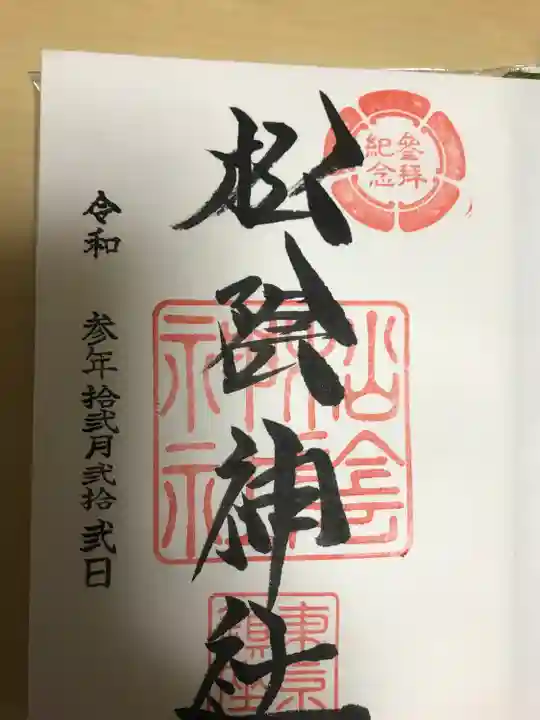 參拜
紀念
松陰神社
令和 参年拾弐月弐拾弐日
松陰
神社
東京
鎮座